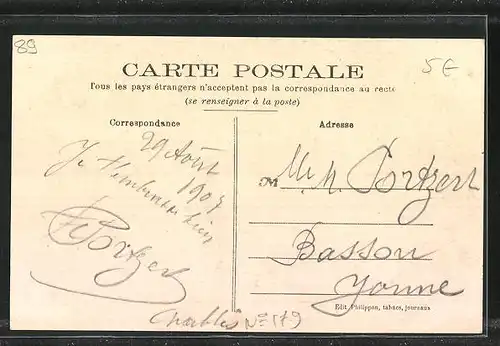 89
5 €
CARTE POSTALE
Tous les pays étrangers n'acceptent pas la correspondance au recto
(se renseigner à la poste)
Correspondance
Adresse
29 Août
190
Je
Portzert
M
M. Portzert
Basson
Yonne
Edit. Philippon, tabacs, journaux
Chablis N° 179